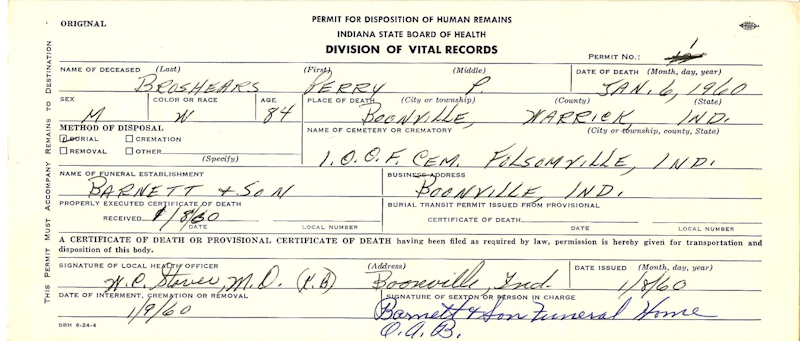 ORIGINAL
PERMIT FOR DISPOSITION OF HUMAN REMAINS
INDIANA STATE BOARD OF HEALTH
DIVISION OF VITAL RECORDS
PERMIT NO.:
THIS PERMIT MUST ACCOMPANY REMAINS TO DESTINATION
NAME OF DECEASED (Last) (First) (Middle) DATE OF DEATH (Month, day, year)
BROSHEARS PERRY P. JAN. 6, 1960
SEX COLOR OR RACE AGE PLACE OF DEATH (City or township) (County) (State)
M W 84 BOONVILLE, WARRICK, IND.
METHOD OF DISPOSAL NAME OF CEMETERY OR CREMATORY (City or township, county, State)
BURIAL CREMATION
REMOVAL OTHER (Specify) I.O.O.F. CEM. FOLSOMVILLE, IND.
NAME OF FUNERAL ESTABLISHMENT BUSINESS ADDRESS
BARNETT + SON BOONVILLE, IND.
PROPERLY EXECUTED CERTIFICATE OF DEATH BURIAL TRANSIT PERMIT ISSUED FROM PROVISIONAL
RECEIVED 1/8/60 CERTIFICATE OF DEATH
DATE LOCAL NUMBER DATE LOCAL NUMBER
A CERTIFICATE OF DEATH OR PROVISIONAL CERTIFICATE OF DEATH having been filed as required by law, permission is hereby given for transportation and
disposition of this body.
SIGNATURE OF LOCAL HEALTH OFFICER (Address) DATE ISSUED (Month, day, year)
W.C. Stover, M.D. Boonville, Ind. 1/8/60
DATE OF INTERMENT, CREMATION OR REMOVAL SIGNATURE OF SEXTON OR PERSON IN CHARGE
1/9/60 Barnett & Son Funeral Home
O.A.B.
SBH 6-24-4